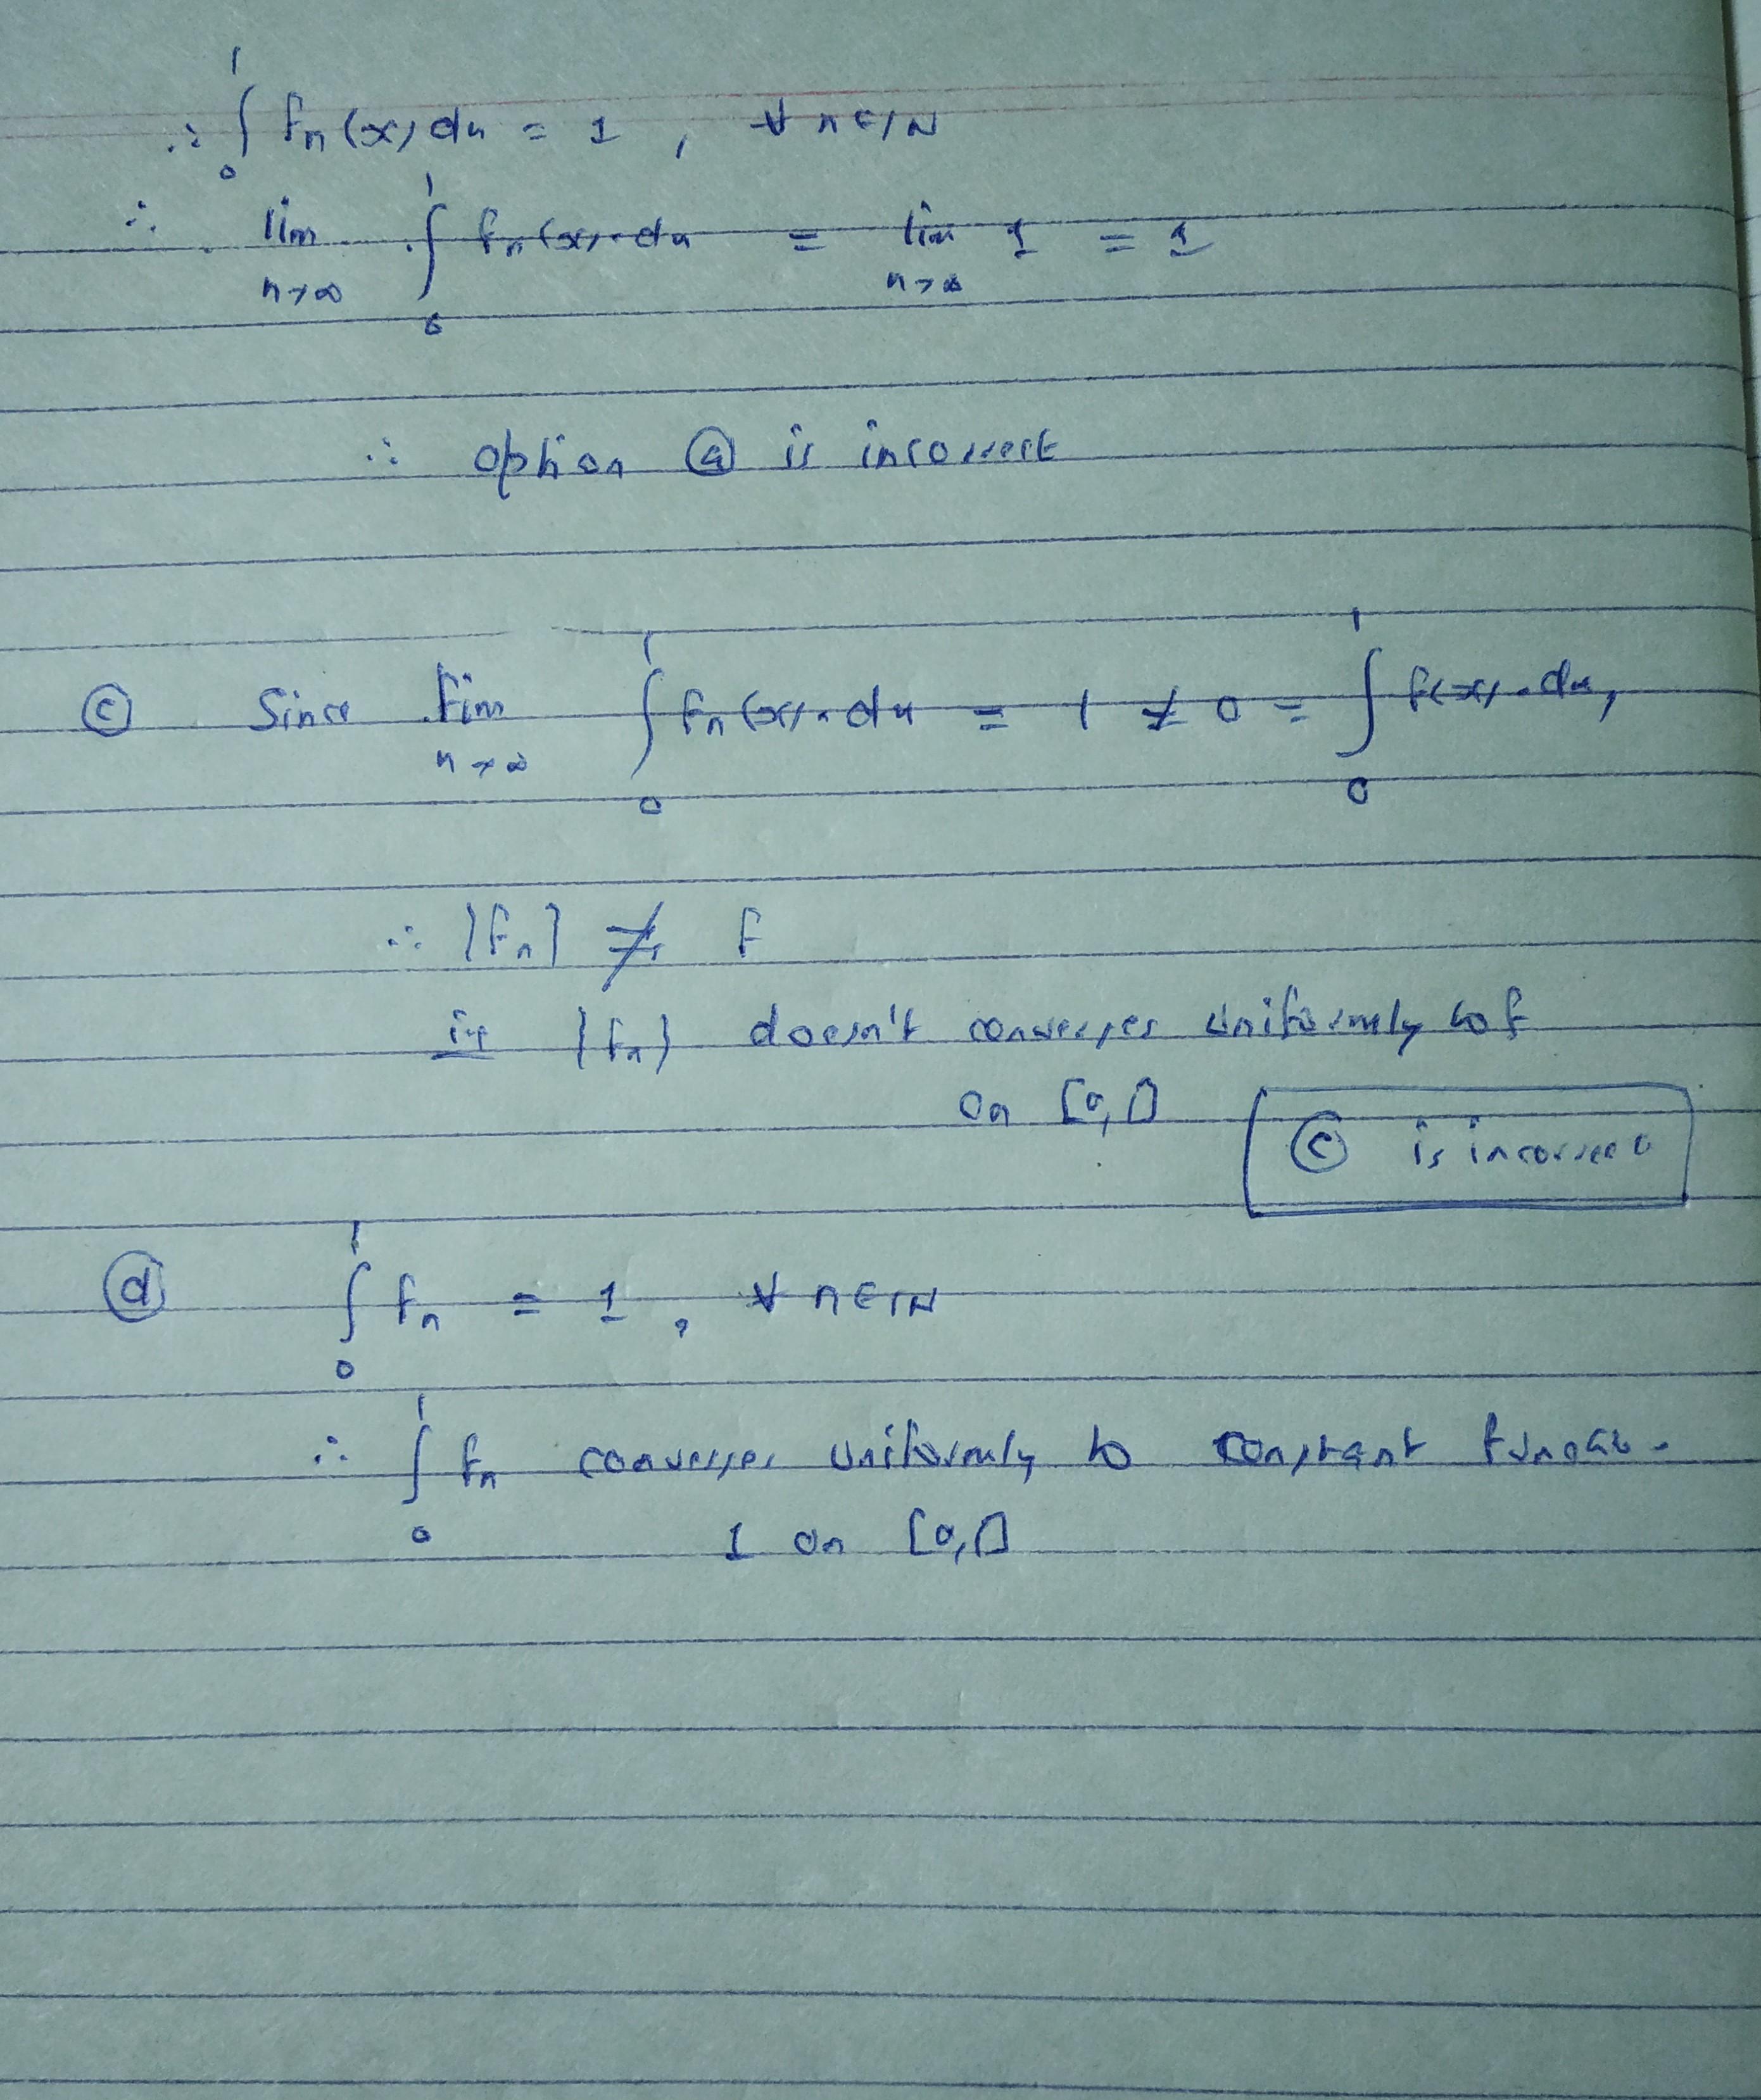 ∴ ∫₀¹ fn(x) dx = 1 , ∀ n ∈ IN
∴ lim n→∞ ∫₀¹ fn(x) · dx = lim n→∞ 1 = 1
∴ option ⓐ is incorrect
ⓒ Since lim n→∞ ∫₀¹ fn(x) · dx = 1 ≠ 0 = ∫₀¹ f(x) · dx,
∴ {fn} ⇉̸ f
ie {fn} doesn't converges uniformly to f
on [0,1]
ⓒ is incorrect
ⓓ ∫₀¹ fn = 1 , ∀ n ∈ IN
∴ ∫₀¹ fn converges uniformly to constant
1 on [0,1]